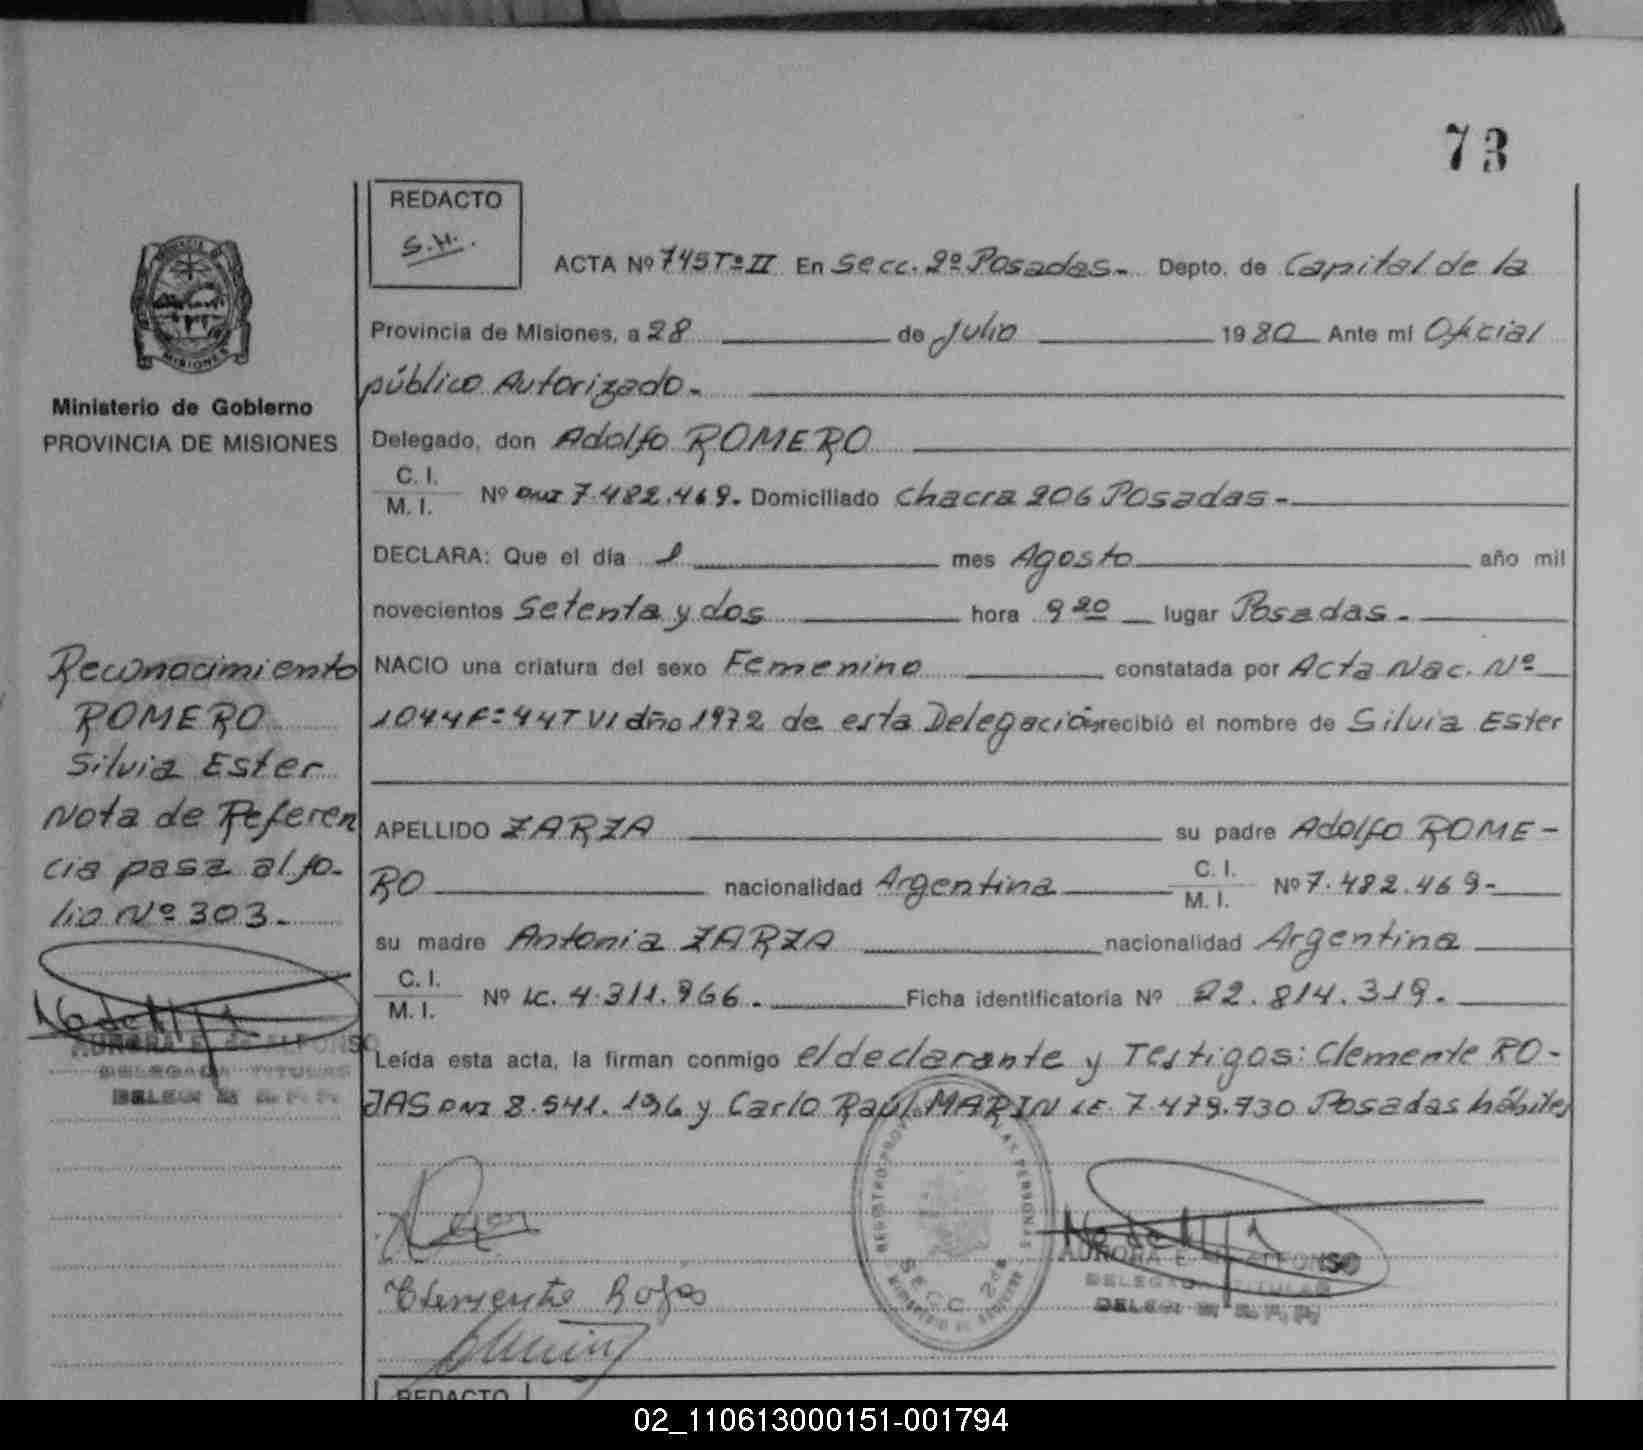 73
REDACTO
S.H.
ACTA Nº 745 Tº II En Secc. 2º Posadas.- Depto. de Capital de la
Provincia de Misiones, a 28 de Julio 1980 Ante mi Oficial
público Autorizado.-
Ministerio de Gobierno
PROVINCIA DE MISIONES
Delegado, don Adolfo ROMERO
C. I.
M. I. Nº DNI 7.482.469. Domiciliado Chacra 206 Posadas-
DECLARA: Que el día 1 mes Agosto año mil
novecientos Setenta y dos hora 9 20 lugar Posadas.-
NACIO una criatura del sexo Femenino constatada por Acta Nac. Nº
1044 Fº 44 T VI año 1972 de esta Delegación recibió el nombre de Silvia Ester
Reconocimiento
ROMERO
Silvia Ester
Nota de Referen
cia pasa al fo-
lio Nº 303.-
APELLIDO ZARZA su padre Adolfo ROME-
RO nacionalidad Argentina C. I. M. I. Nº 7.482.469-
su madre Antonia ZARZA nacionalidad Argentina
C. I.
M. I. Nº LC. 4.311.966. Ficha identificatoria Nº 22.814.319.
Leída esta acta, la firman conmigo el declarante y Testigos: Clemente RO-
JAS DNI 8.541.196 y Carlo Raúl MARIN LE. 7.479.930 Posadas hábiles
AURORA E. de ALFONSO
DELEGADA TITULAR
Clemente Rojas
SECC 2da
AURORA E. de ALFONSO
DELEGADA TITULAR
REDACTO
02_110613000151-001794